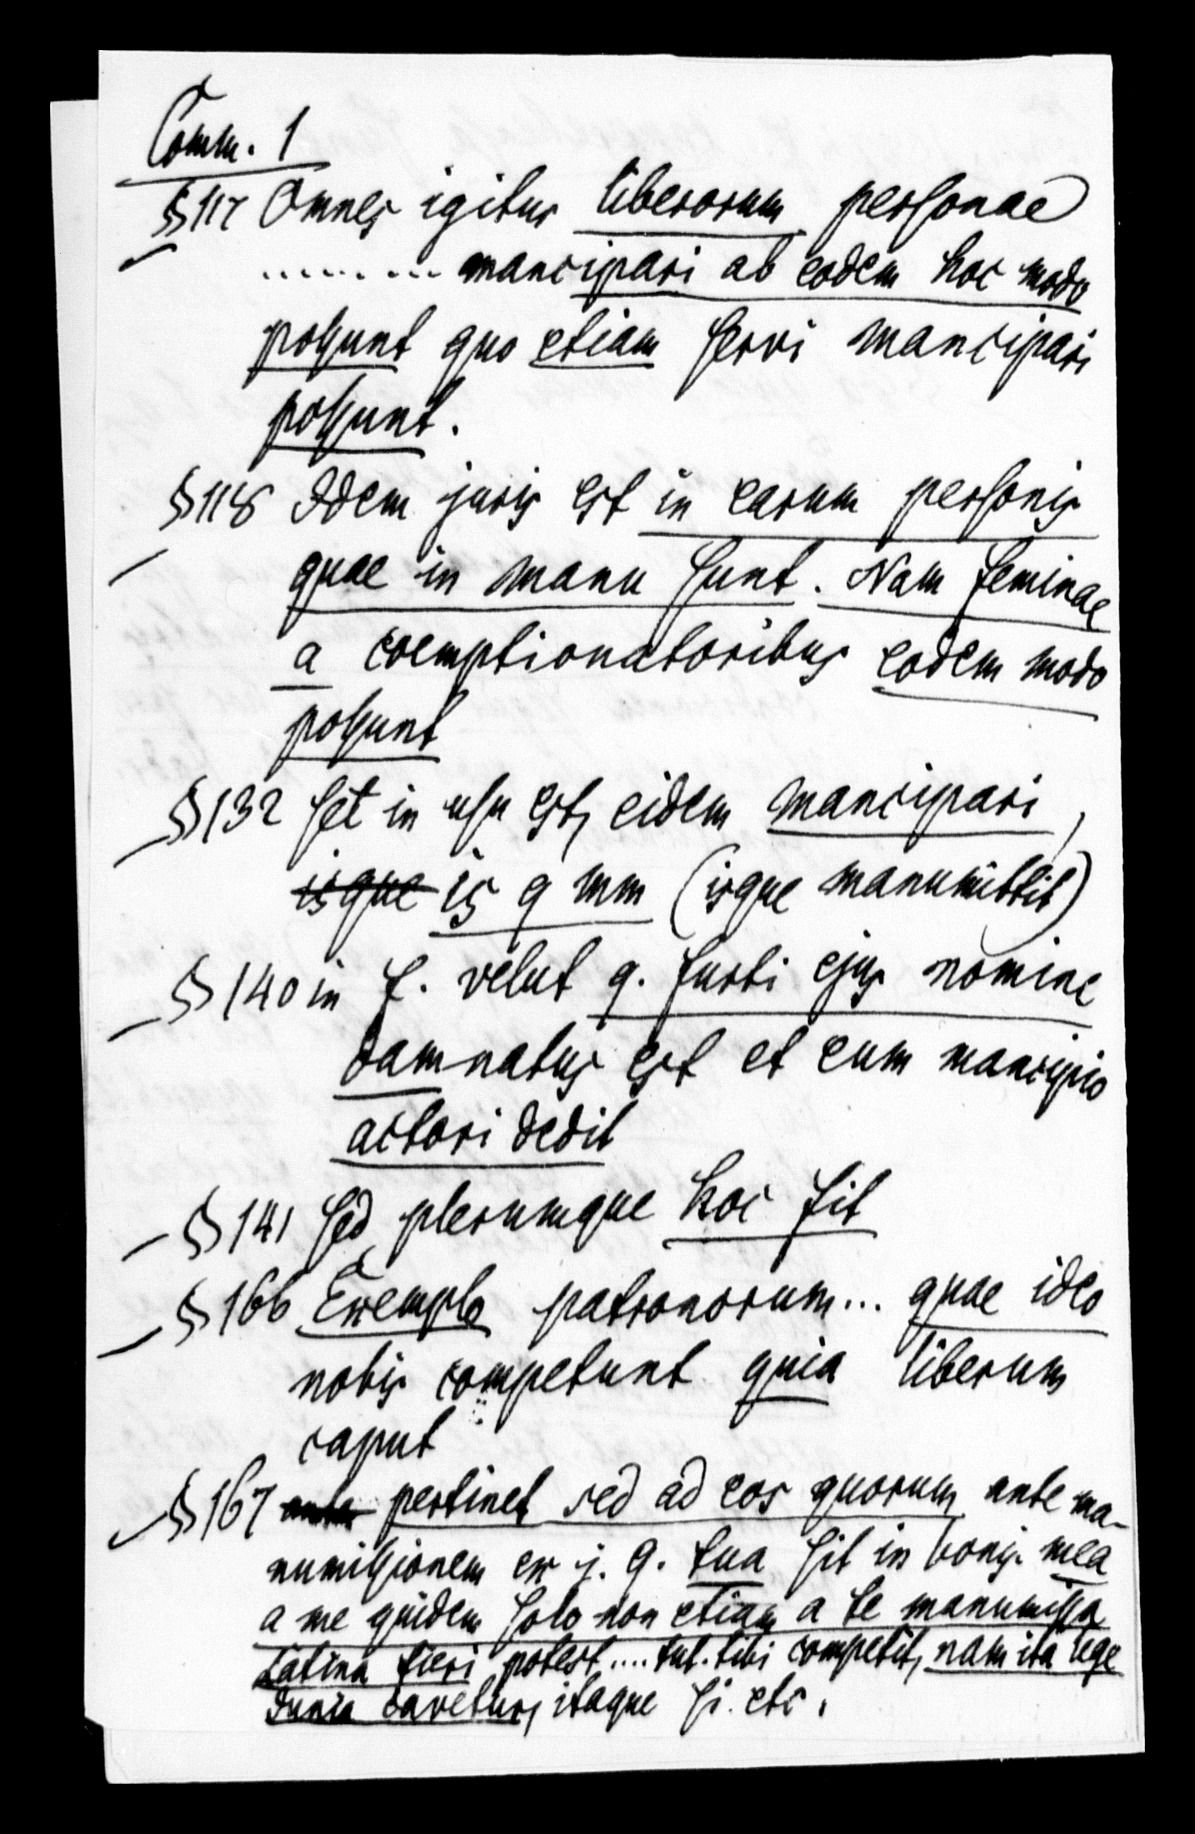 Comm. 1
§ 117 Omnes igitur liberorum personae
......... mancipari ab eodem hoc modo
possunt quo etiam servi mancipari
possunt.
§ 118 Idem juris est in earum personis
quae in manu sunt. Nam feminae
a coemptionatoribus eodem modo
possunt
§ 132 set in usu est, eidem mancipari,
isque is q mm (isque manumittit)
§ 140 in f. velut q. furti ejus nomine
damnatus est et eum mancipio
actori dedit
§ 141 sed plerumque hoc fit
§ 166 Exemplo patronorum... quae ideo
nobis competunt quia liberum
caput
§ 167 pertinet sed ad eos quorum ante ma-
numissionem ex j. q. tua sit in bonis mea
a me quidem solo non etiam a te manumissa
Latina fieri potest .... tut. tibi competit, nam ita lege
Junia cavetur, itaque si. etc.